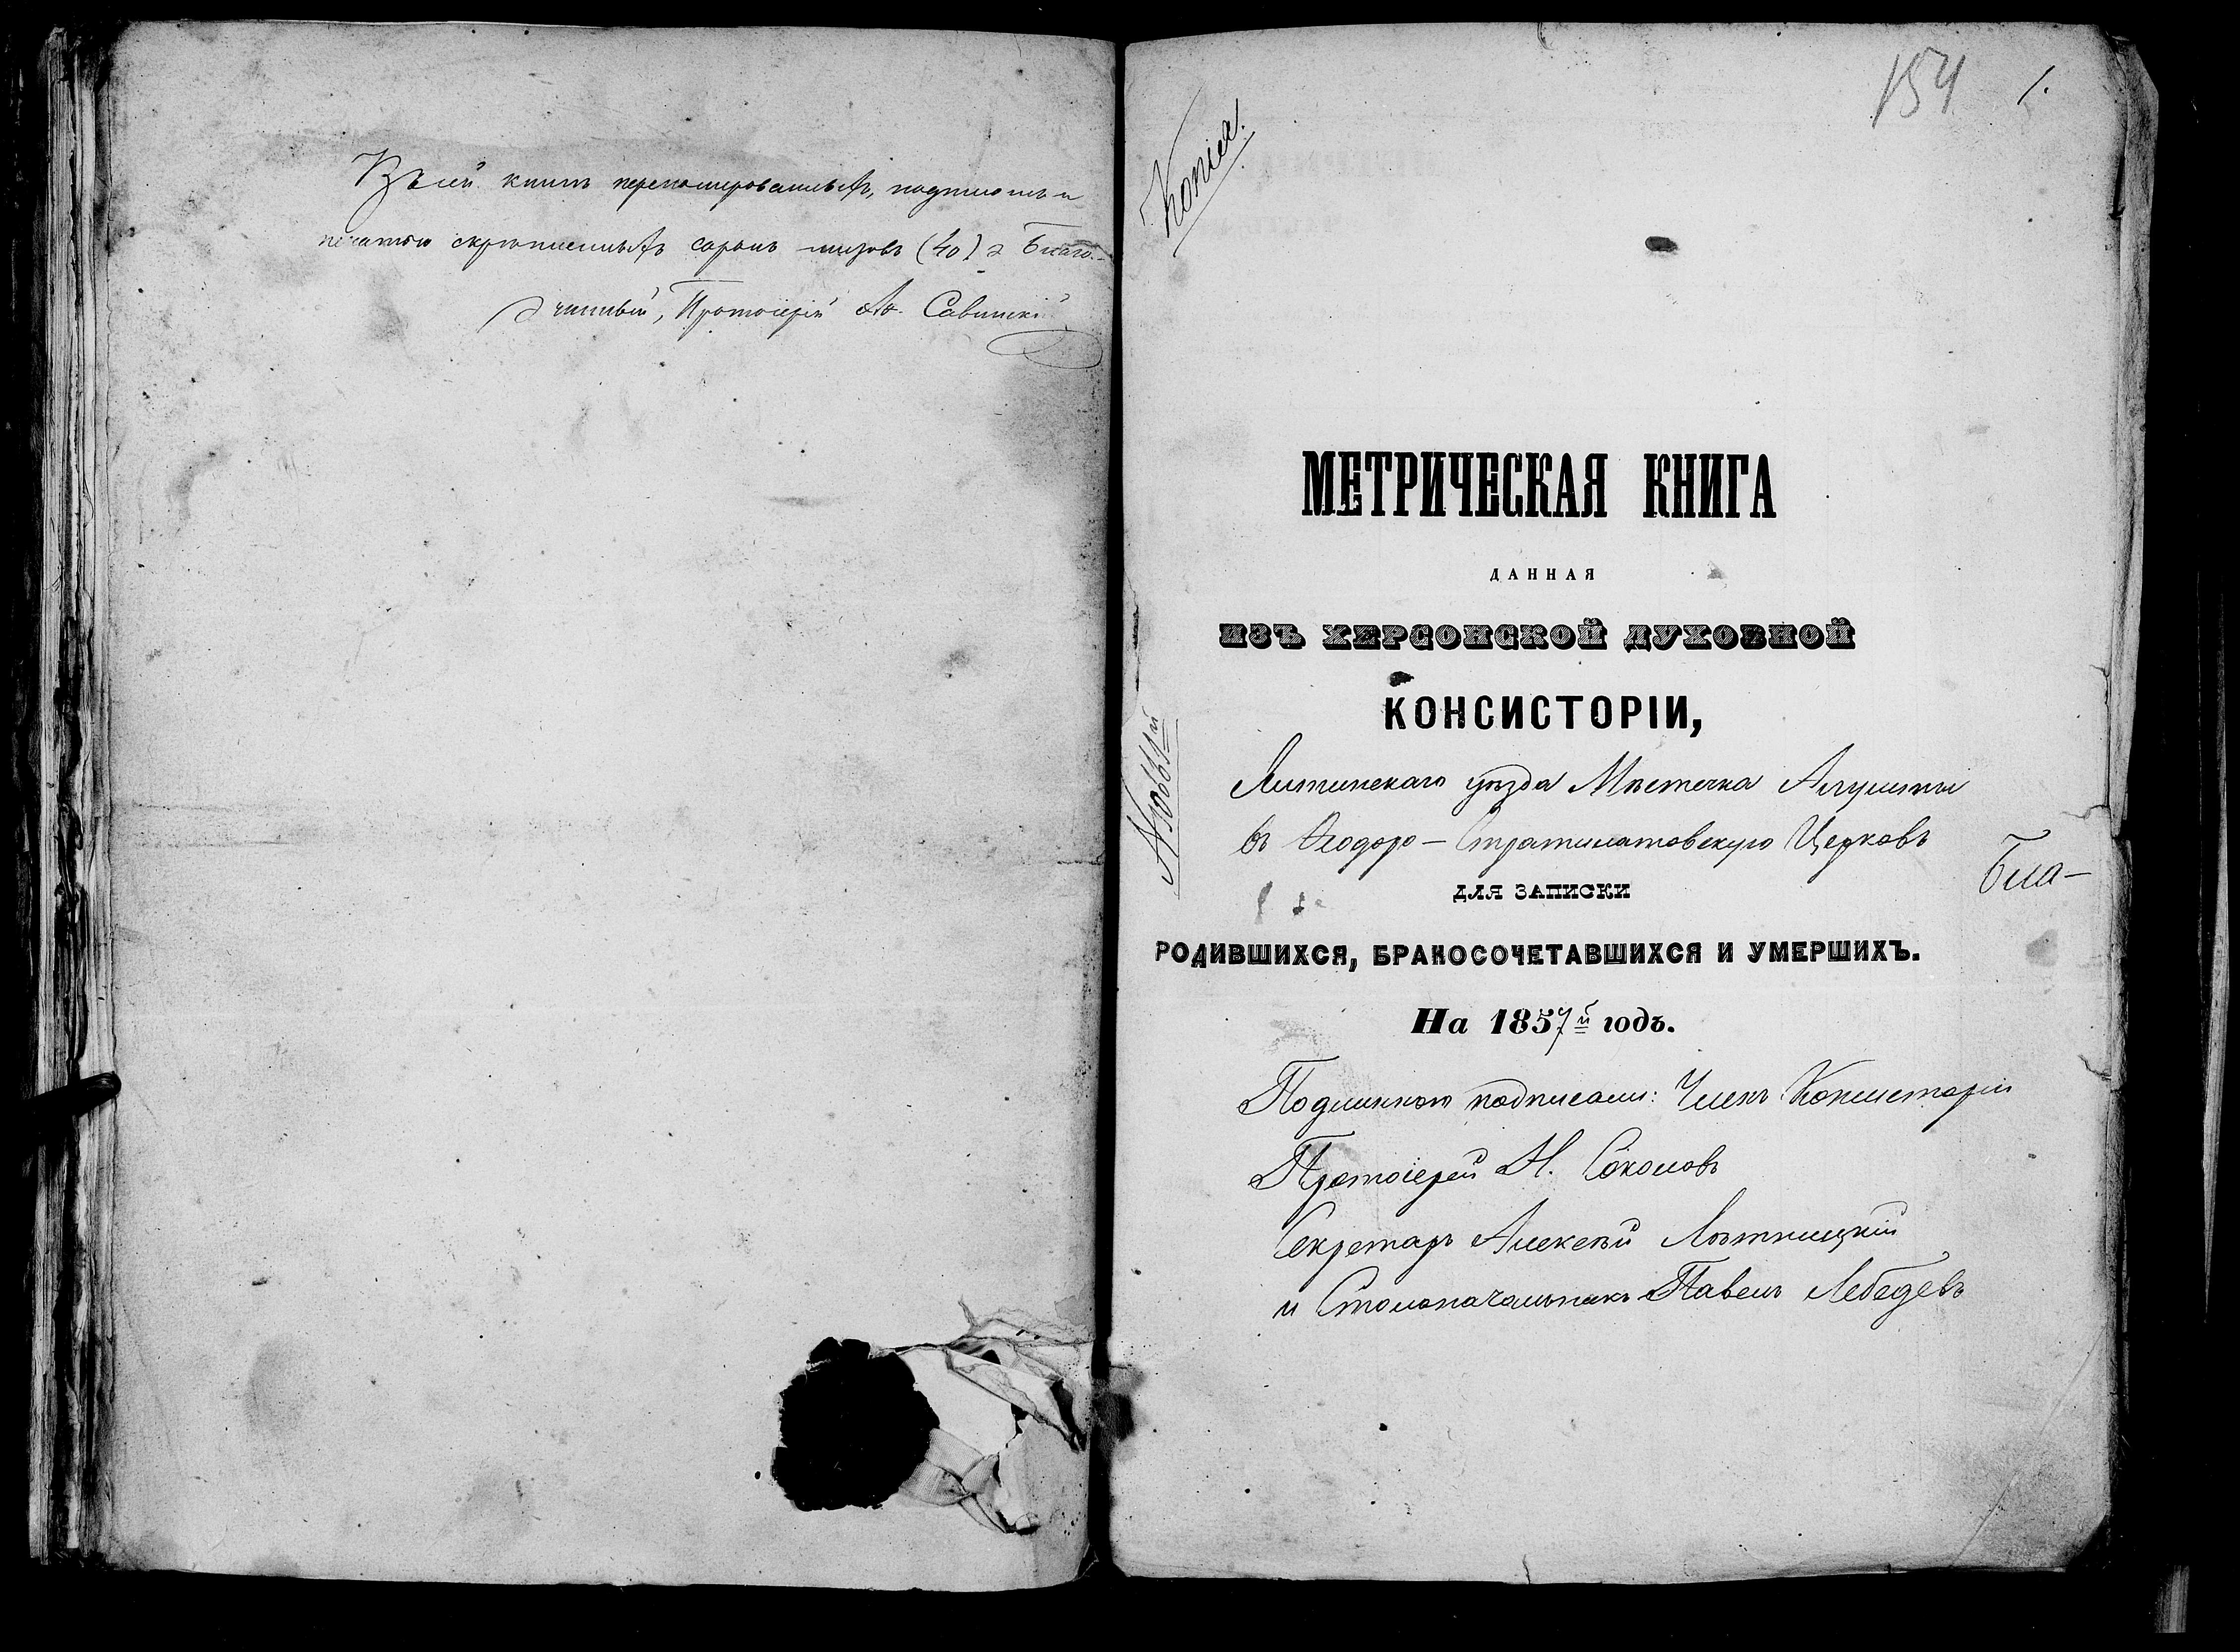 Въ сей книгѣ перенумерованныхъ, подписью и
печатью скрѣпленныхъ сорокъ листовъ (40) Благо-
чинный, Протоіерей Ал. Савинскій
154 1.
Копія.
МЕТРИЧЕСКАЯ КНИГА
ДАННАЯ
ИЗЪ ХЕРСОНСКОЙ ДУХОВНОЙ
КОНСИСТОРІИ,
Ялтинскаго уѣзда Мѣстечка Алушты
въ Ѳеодоро-Стратилатовскую Церковь
Бла-
ДЛЯ ЗАПИСКИ
РОДИВШИХСЯ, БРАКОСОЧЕТАВШИХСЯ И УМЕРШИХЪ.
На 1857й годъ.
Подлинную подписали: Членъ Консисторіи
Протоіерей Н. Соколовъ
Секретарь Алексѣй Лѣтницкій
и Столоначальникъ Павелъ Лебедевъ